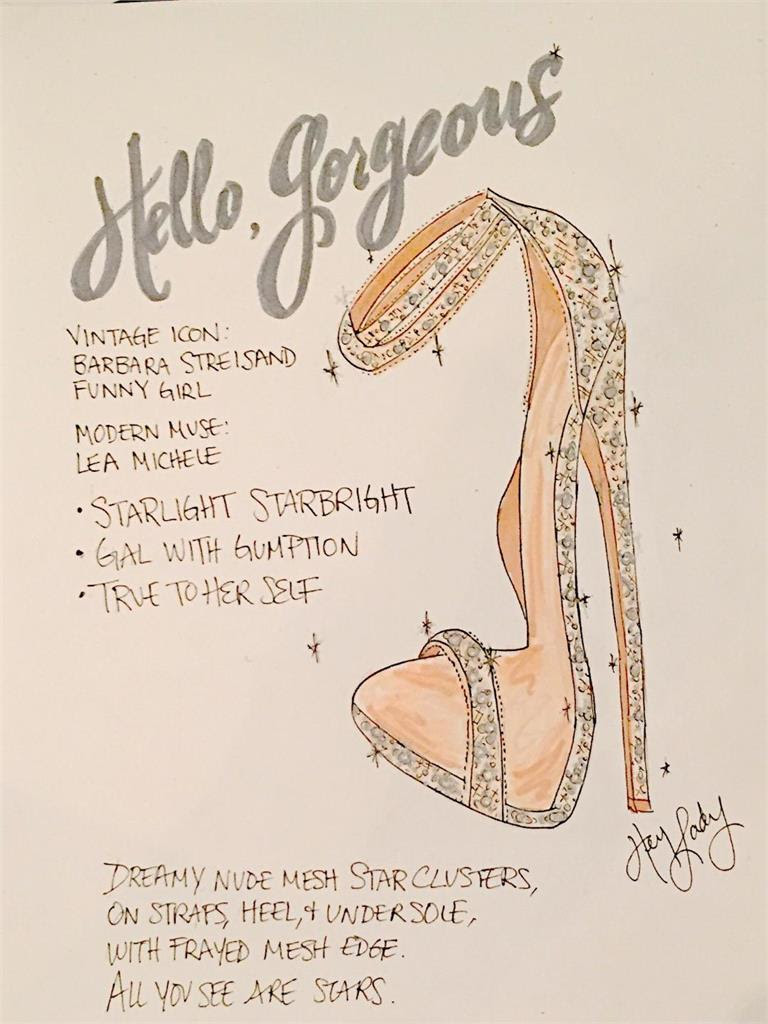 Hello, Gorgeous
VINTAGE ICON:
BARBARA STREISAND
FUNNY GIRL
MODERN MUSE:
LEA MICHELE
• STARLIGHT STARBRIGHT
• GAL WITH GUMPTION
• TRUE TO HER SELF
Hey Lady
DREAMY NUDE MESH STAR CLUSTERS,
ON STRAPS, HEEL, & UNDERSOLE,
WITH FRAYED MESH EDGE.
ALL YOU SEE ARE STARS.